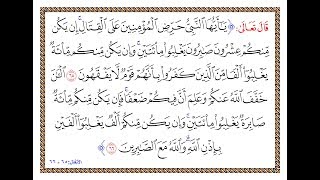 قَالَ تَعَالَى: ﴿ يَٰٓأَيُّهَا ٱلنَّبِيُّ حَرِّضِ ٱلۡمُؤۡمِنِينَ عَلَى ٱلۡقِتَالِۚ إِن يَكُن
مِّنكُمۡ عِشۡرُونَ صَٰبِرُونَ يَغۡلِبُواْ مِاْئَتَيۡنِۚ وَإِن يَكُن مِّنكُم مِّاْئَةٞ
يَغۡلِبُوٓاْ أَلۡفٗا مِّنَ ٱلَّذِينَ كَفَرُواْ بِأَنَّهُمۡ قَوۡمٞ لَّا يَفۡقَهُونَ ٦٥ ٱلۡـَٰٔنَ
خَفَّفَ ٱللَّهُ عَنكُمۡ وَعَلِمَ أَنَّ فِيكُمۡ ضَعۡفٗاۚ فَإِن يَكُن مِّنكُم مِّاْئَةٞ
صَابِرَةٞ يَغۡلِبُواْ مِاْئَتَيۡنِۚ وَإِن يَكُن مِّنكُمۡ أَلۡفٞ يَغۡلِبُوٓاْ أَلۡفَيۡنِ
بِإِذۡنِ ٱللَّهِۗ وَٱللَّهُ مَعَ ٱلصَّٰبِرِينَ ٦٦ ﴾
الأنفال: ٦٥ - ٦٦